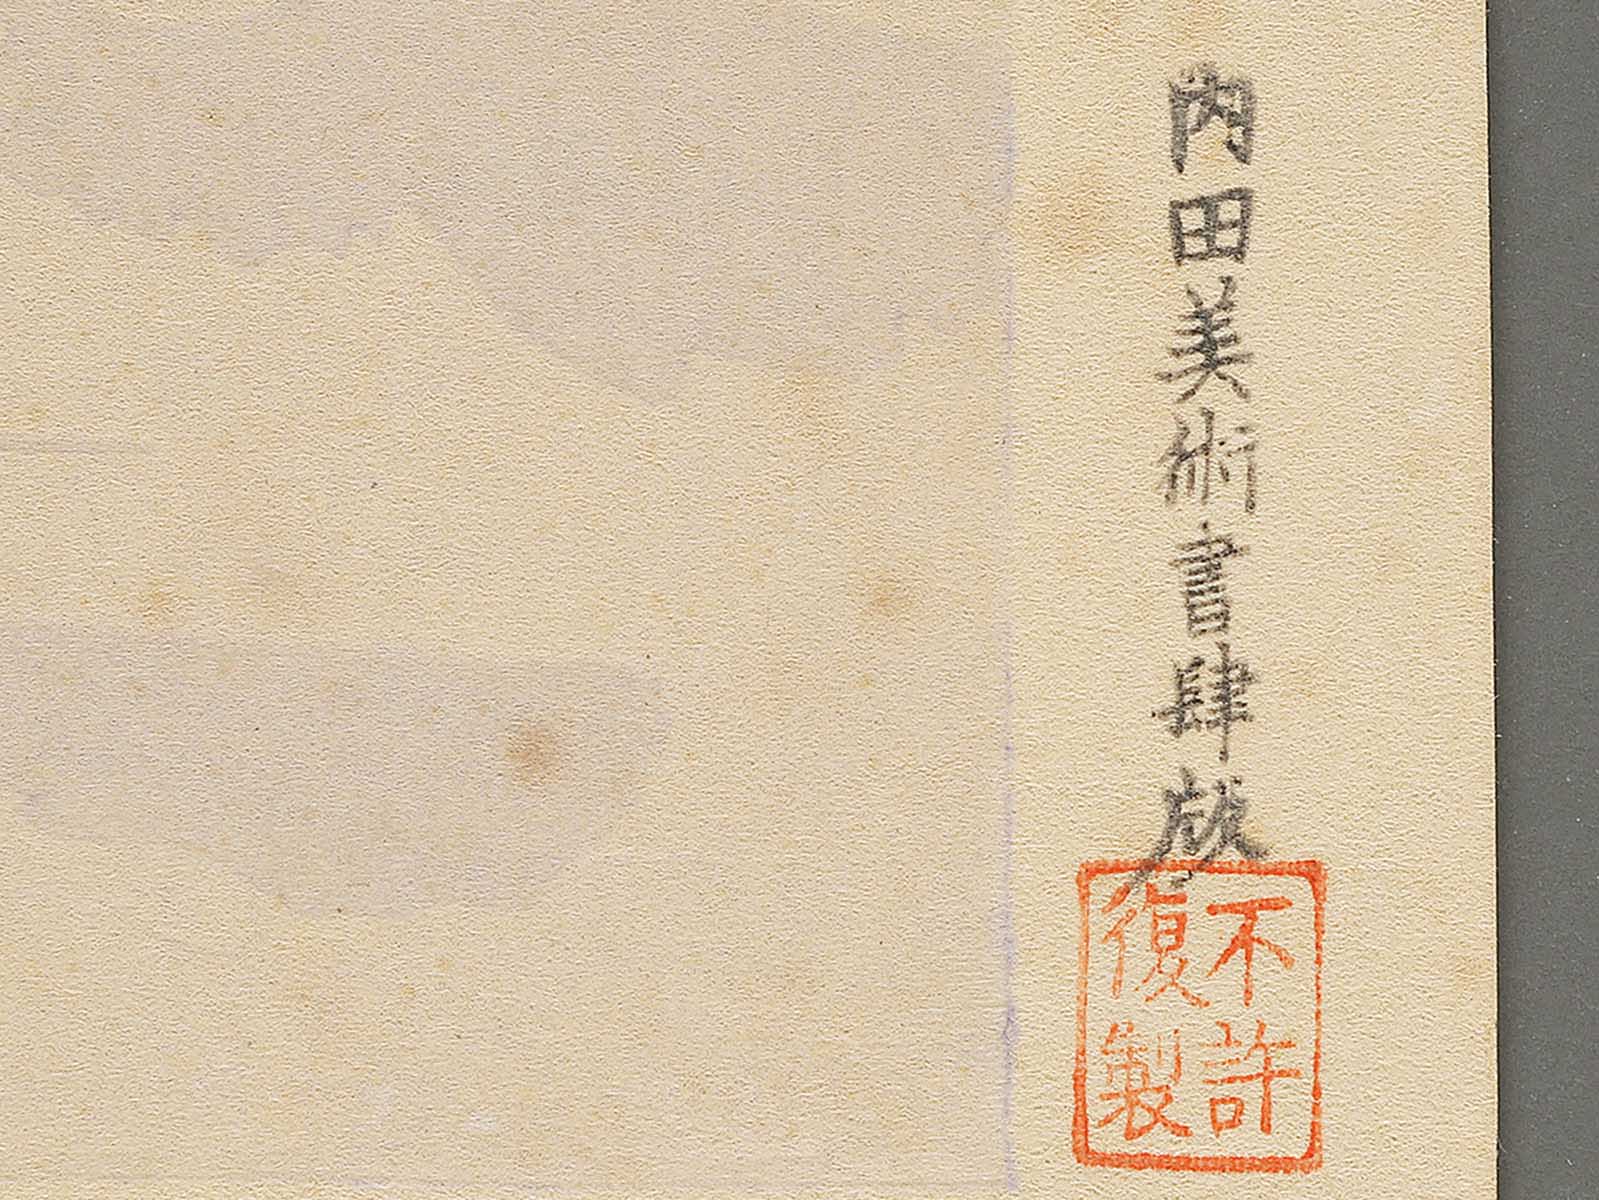 內田美術書肆版
不許
復製